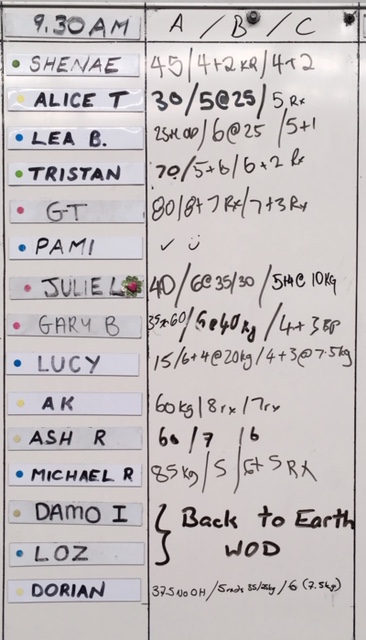 9.30 AM A / B / C
SHENAE 45 / 4+2 RX / 4+2
ALICE T 30 / 5@25 / 5 Rx
LEA B. / 6@25 / 5+1
TRISTAN 70 / 5+6 / 6+2 Rx
GT 80 / 8+7 Rx / 7+3 Rx
PAMI ✓ ü
JULIE L 40 / 6@35/30 / 10kg
GARY B / 40kg / 4+3
LUCY 15 / 6+4@20kg / 4+3@7.5kg
AK 60kg / 8rx / 7rx
ASH R 60 / 7 / 6
MICHAEL R 85kg / 5 / 5+5 RX
DAMO I } Back to Earth
LOZ WOD
DORIAN 37.5 No OH / / 6 (7.5kg)